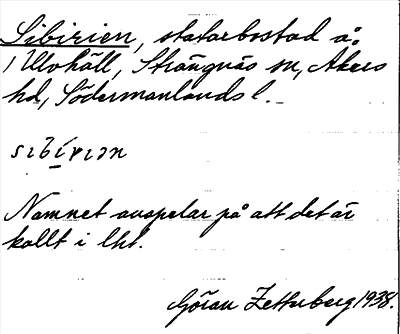 Sibirien, statarbostad å.
i Ulvhäll, Strängnäs sn, Åkers
hd, Södermanlands l.
sibíriən
Namnet anspelar på att det är
kallt i lht.
Göran Zetterberg 1938.